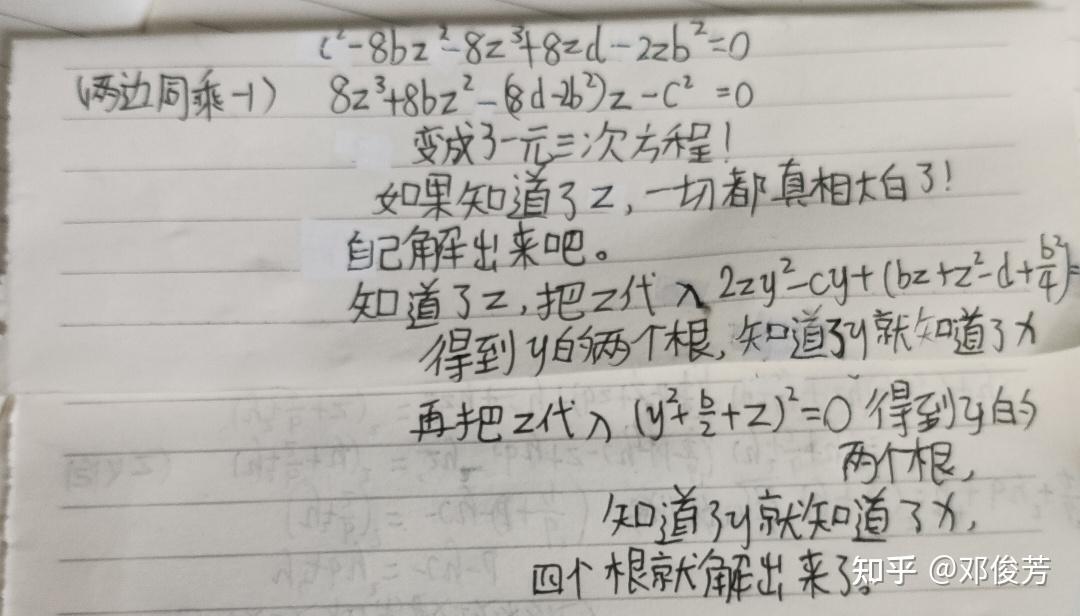 c²-8bz²-8z³+8zd-2zb²=0
(两边同乘-1) 8z³+8bz²-(8d-2b²)z-c²=0
变成了一元三次方程!
如果知道了z,一切都真相大白了!
自己解出来吧。
知道了z,把z代入2zy²-cy+(bz+z²-d+b²/4)=
得到y的两个根,知道了y就知道了x
再把z代入(y²+b/2+z)²=0得到y的
两个根,
知道了y就知道了x,
四个根就解出来了。
知乎 @邓俊芳